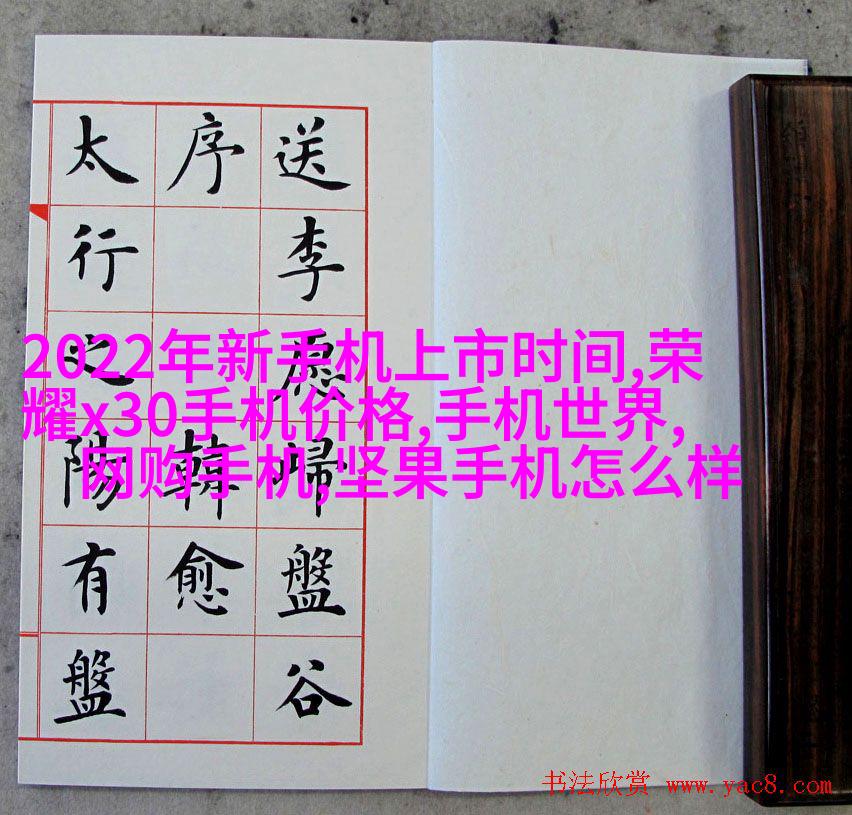 送李愿歸盤谷
序韓愈
太行之陽有盤
2022年新手机上市时间,荣
耀x30手机价格,手机世界,
网购手机,坚果手机怎么样
书法欣赏 www.yac8.com